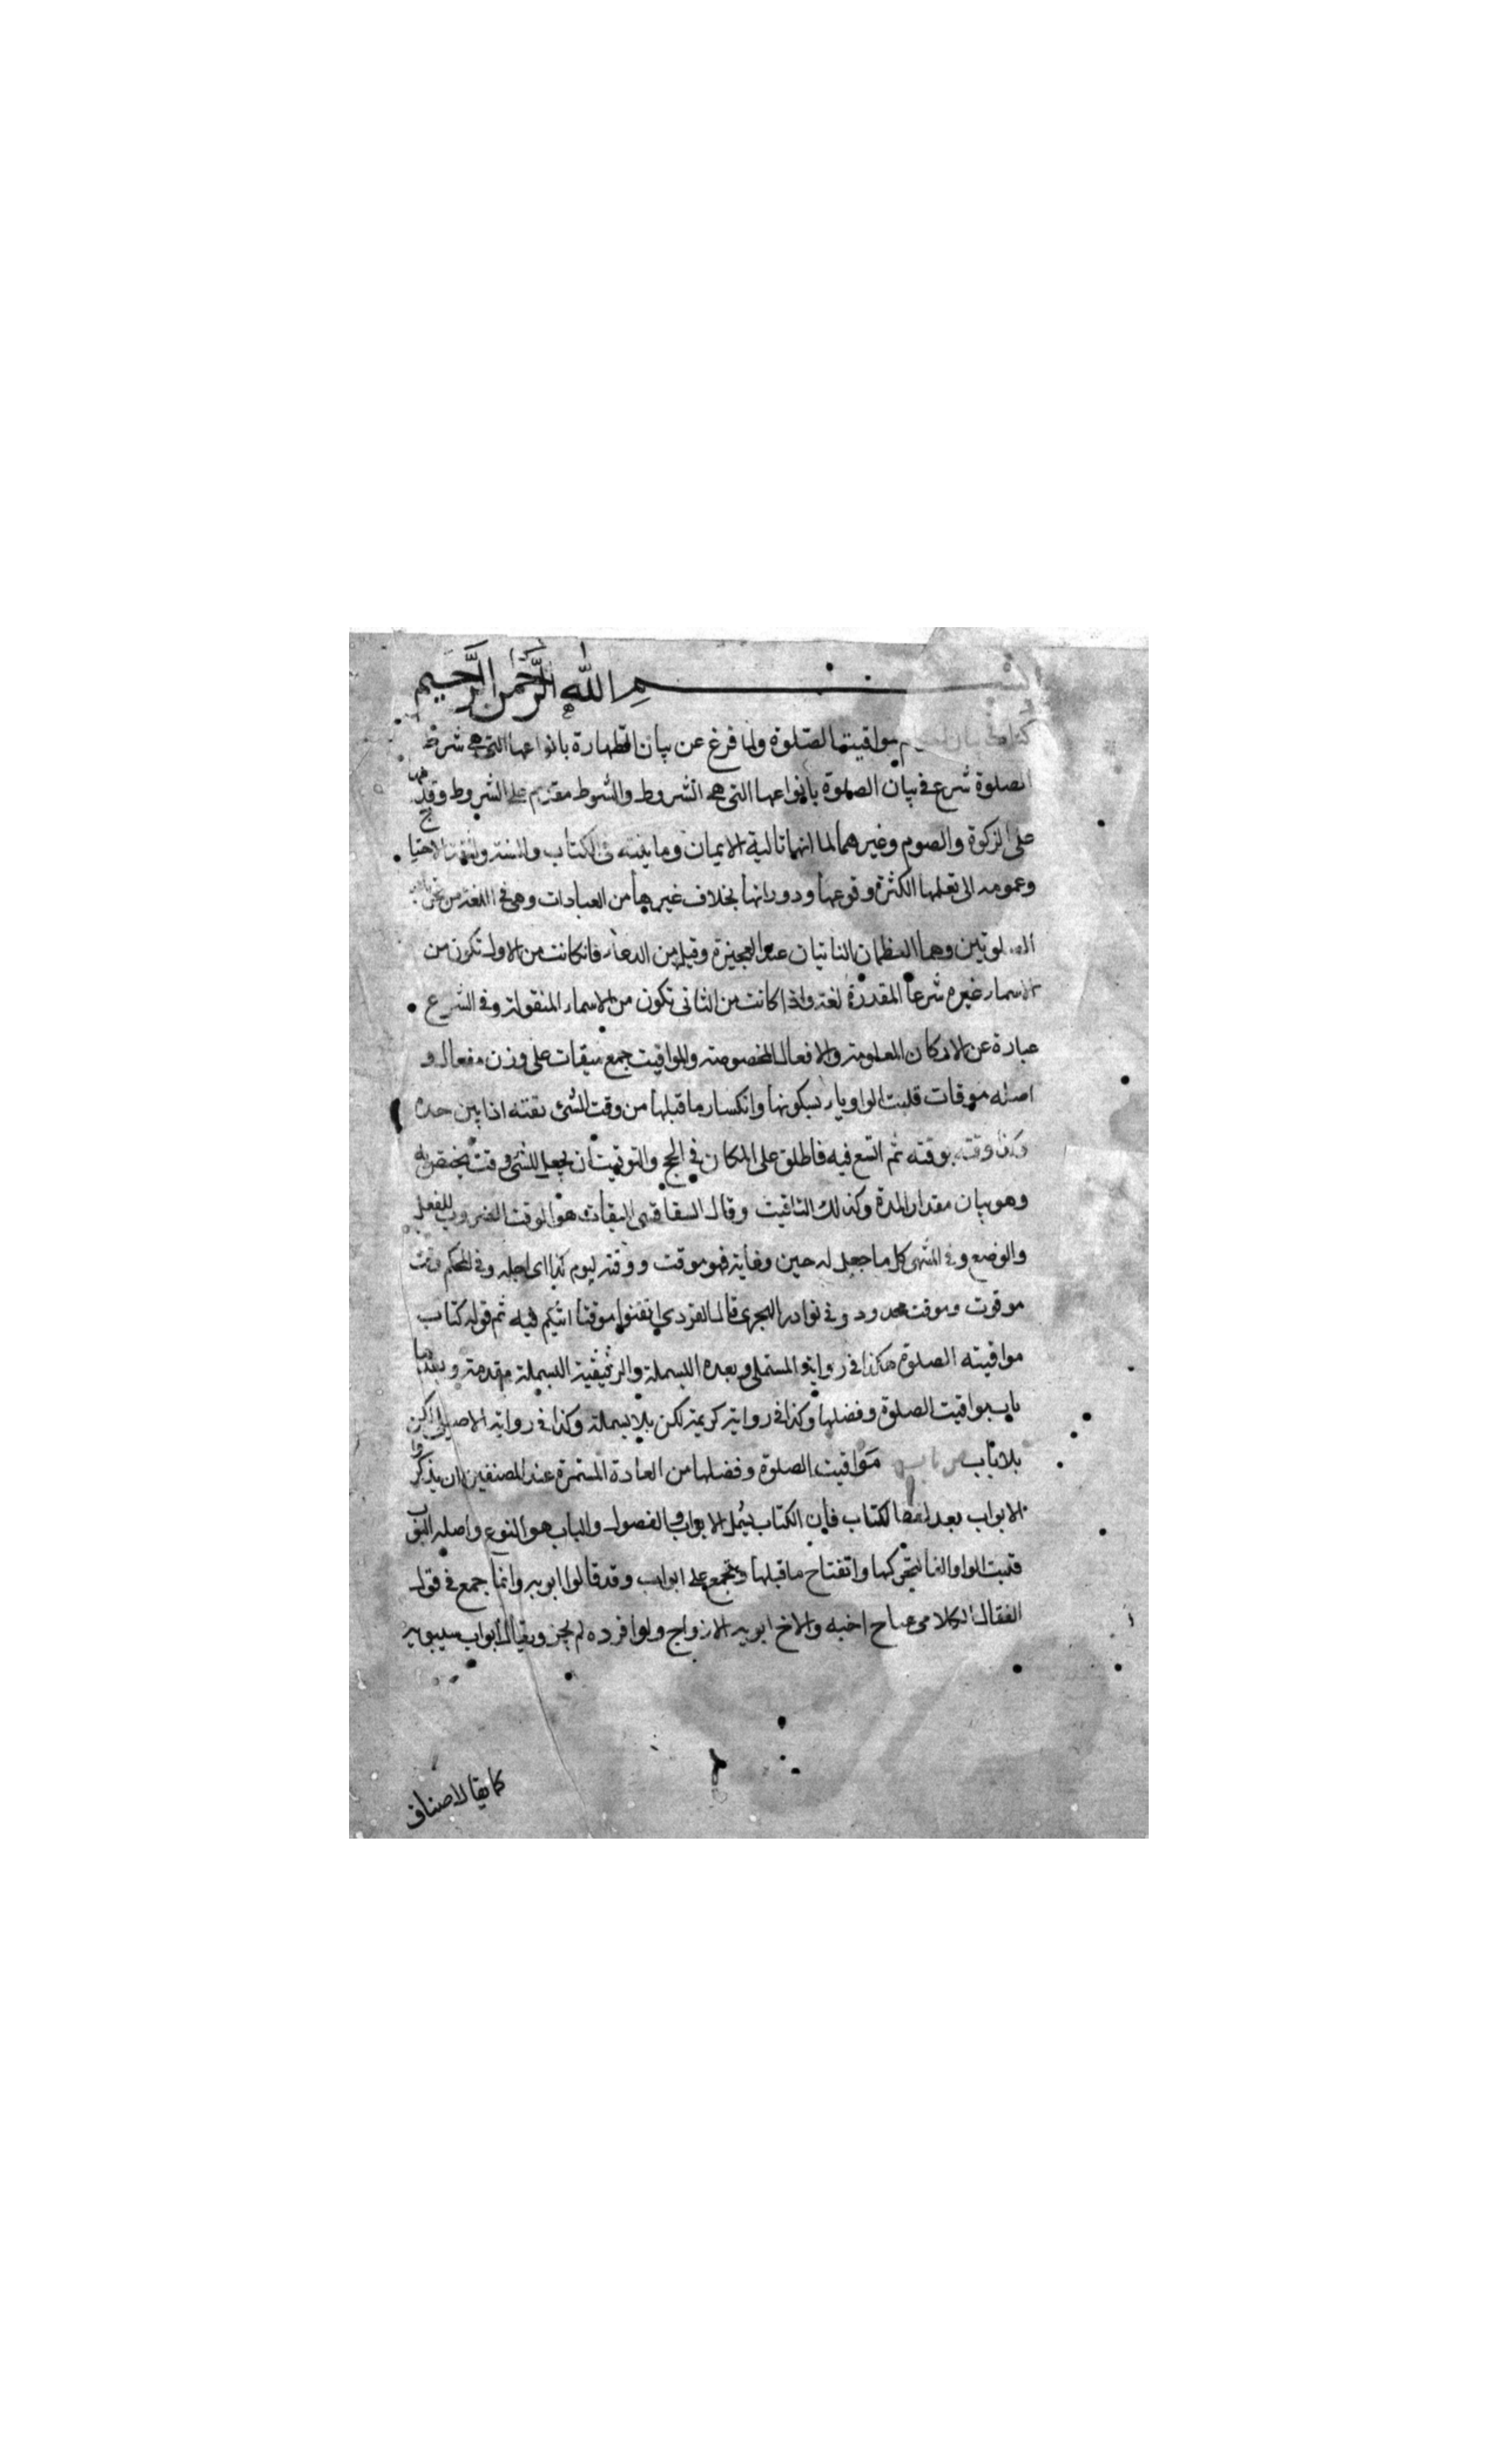 بسم الله الرحمن الرحيم
كتاب مواقيت الصلوة ولما فرغ عن بيان الطهارة بانواعها التي هي شرط
الصلوة شرع في بيان الصلوة بانواعها التي هي المشروط والشرط مقدم على المشروط وقدمها
على الزكوة والصوم وغيرهما لما انها تالية الايمان وثانيته في الكتاب والسنة ولشدة الاحتياج
وعمومه الى تعلمها لكثرة وقوعها ودورانها بخلاف غيرها من العبادات وهي في اللغة من تحريك
الصلوين وهما العظمان الناتيان عند العجيزة وقيل من الدعاء فان كانت من الاول تكون من
الاسماء المغيرة شرعا المقررة لغة واذا كانت من الثاني تكون من الاسماء المنقولة وفي الشرع
عبارة عن الاركان المعلومة والافعال المخصوصة والمواقيت جمع ميقات على وزن مفعال و
اصله موقات قلبت الواو ياء لسكونها وانكسار ما قبلها من وقت الشئ يقته اذا بين حده
وكذا وقته يوقته ثم اتسع فيه فاطلق على المكان في الحج والتوقيت ان يجعل للشئ وقت يختص به
وهو بيان مقدار المدة وكذلك التاقيت وقال السفاقسي الميقات هو الوقت المضروب للفعل
والموضع وفي المنتهى كل ما جعل له حين وغاية فهو موقت ووقته ليوم كذا اي اجله وفي المحكم وقت
موقوت وموقت محدود وفي نوادر الهجري قال القردي ايقتوا موقتا اتيكم فيه ثم قوله كتاب
مواقيت الصلوة هكذا في رواية المستملي وبعده البسملة والرفيقيه البسملة مقدمة وبعدها
باب مواقيت الصلوة وفضلها وكذا في رواية كريمة لكن بلا بسملة وكذا في رواية الاصيلي لكن
بلا باب مواقيت الصلوة وفضلها من العادة المستمرة عند المصنفين ان يذكروا
الابواب بعد لفظ الكتاب فان الكتاب يشمل الابواب والفصول والباب هو النوع واصله البوب
قلبت الواو الفا لتحركها وانفتاح ما قبلها ويجمع على ابواب وقد قالوا ابوبه وانما جمع في قول
القتال الكلابي هتاك اخبية ولاج ابوبه للازدواج ولو افرده لم يجز ويقال ابواب مبوبه
كما يقال اصناف